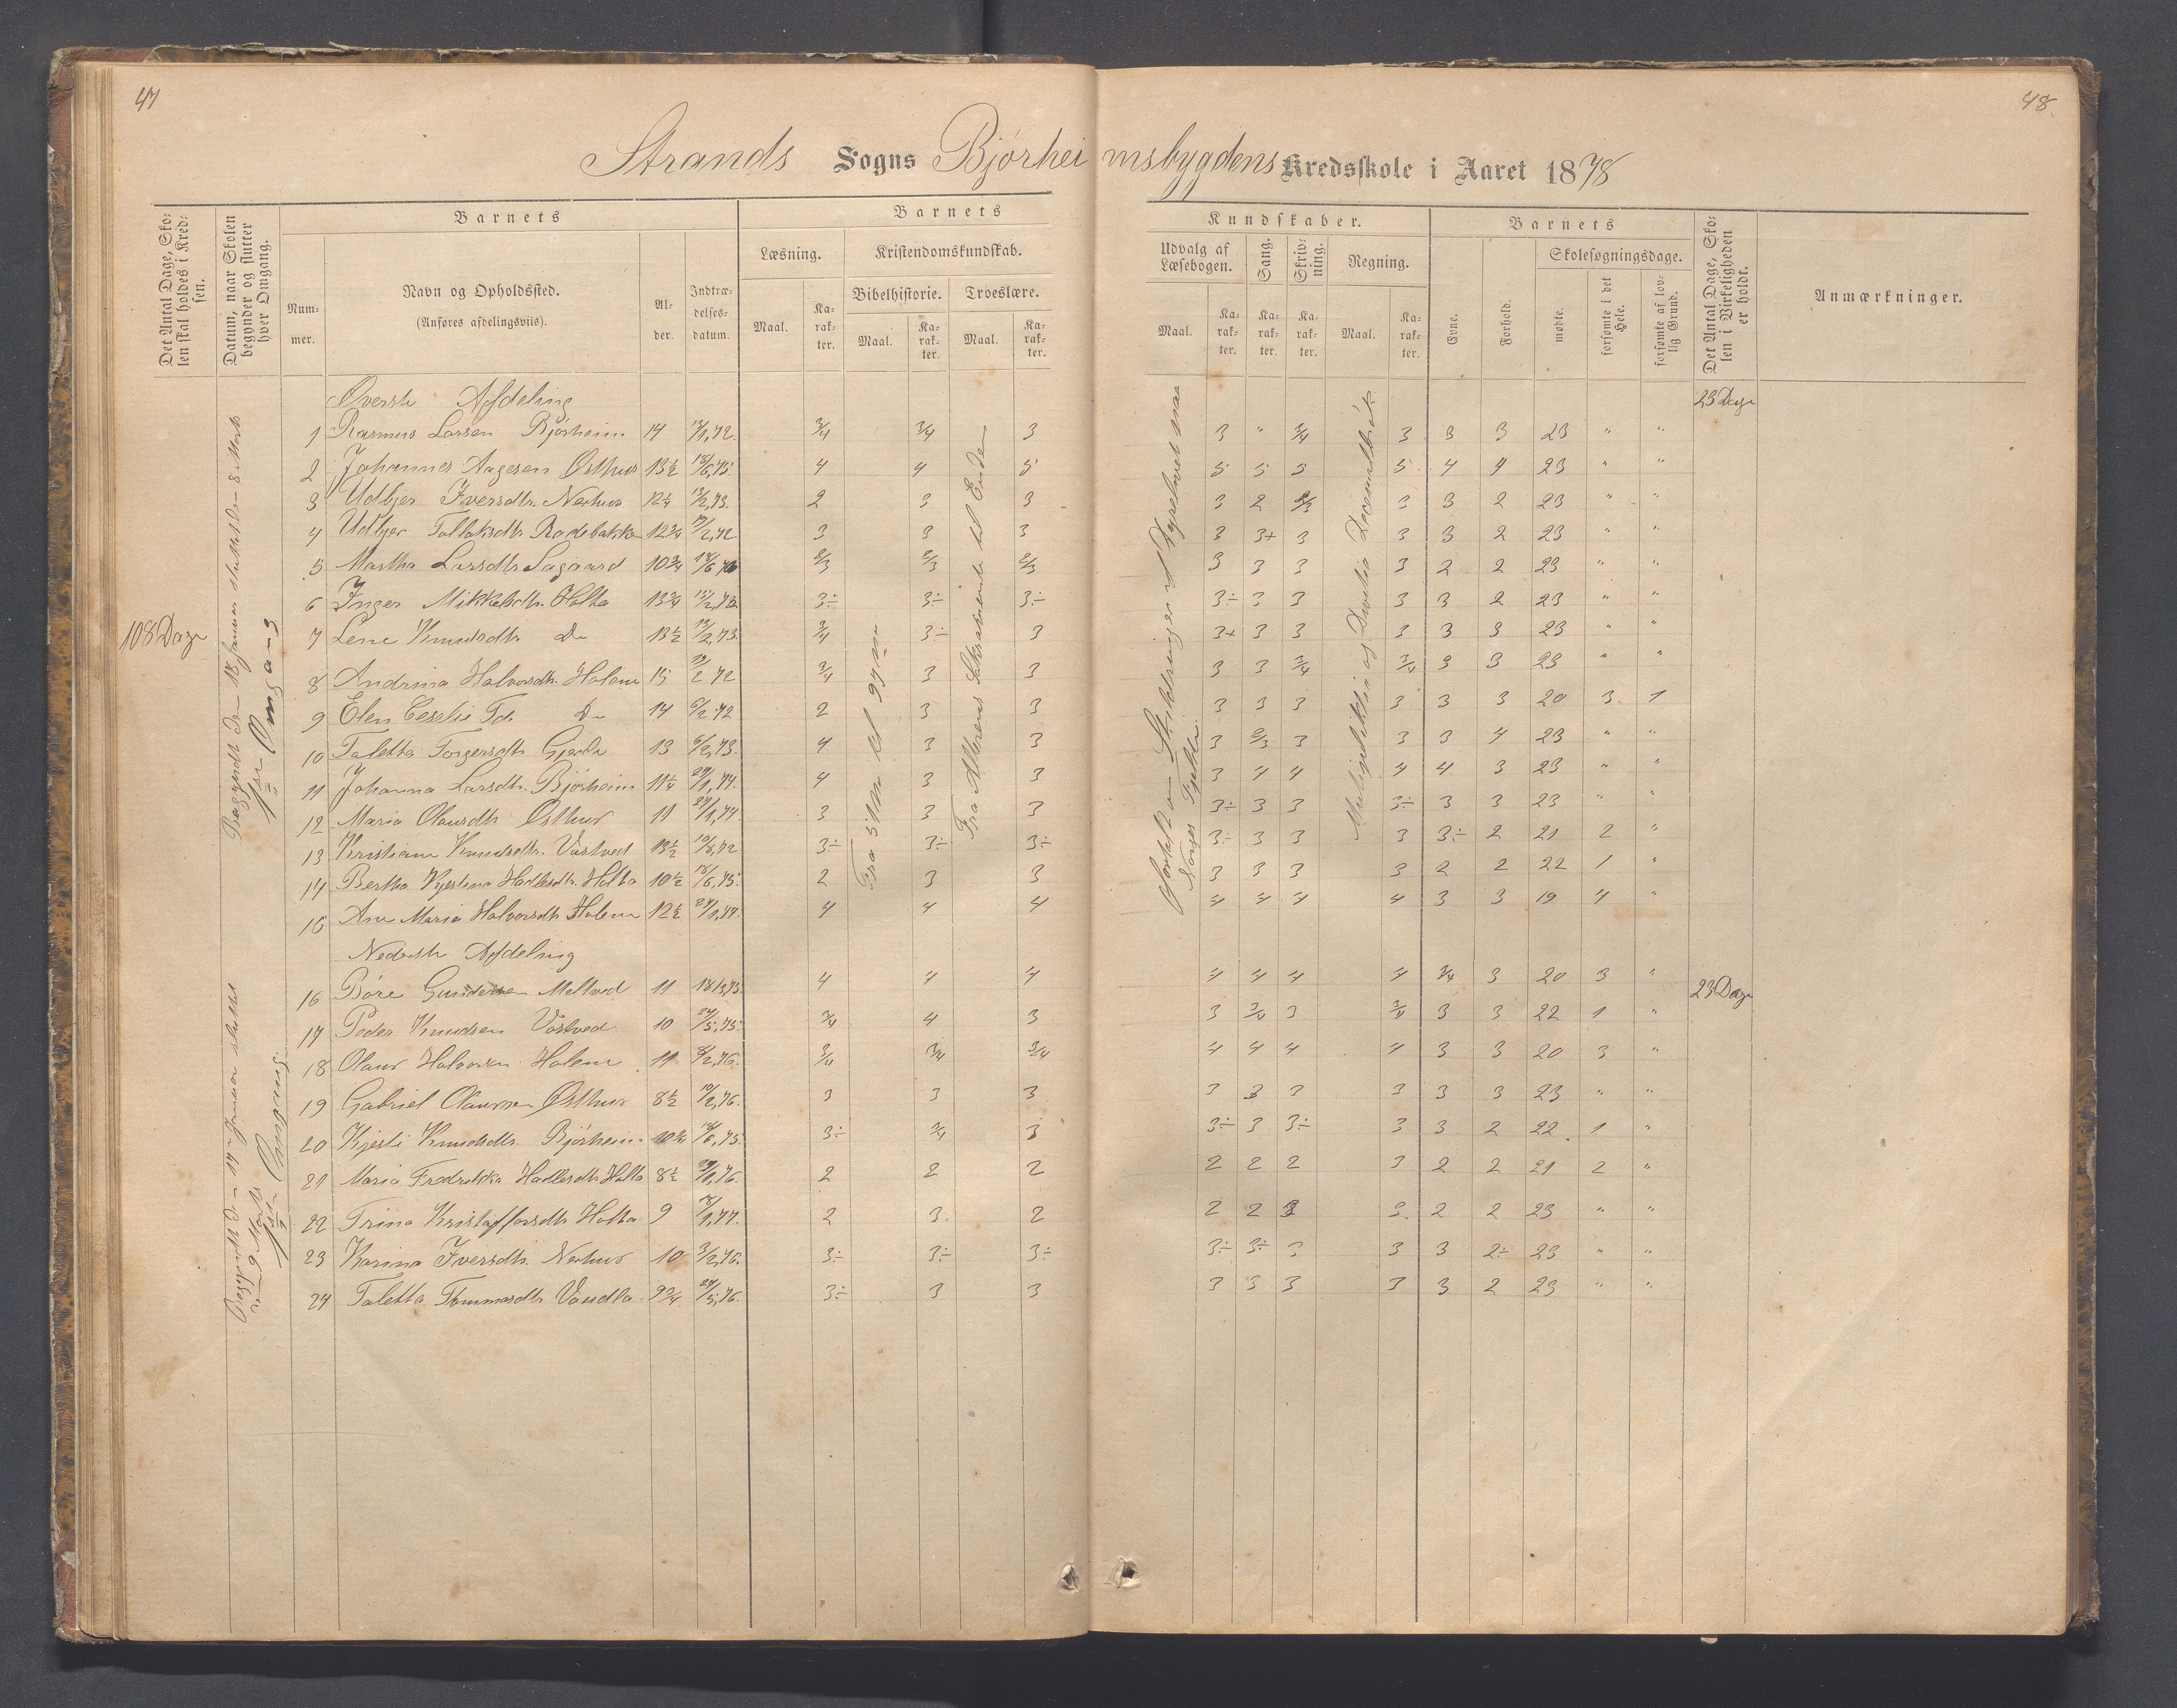 47
48.
Strands Sogns Bjørheimsbygdens Kredsskole i Aaret 1878
Det Antal Dage, Skolen skal holdes i Kredsen.
Datum, naar Skolen begynder og slutter hver Omgang.
Barnets
Nummer.
Navn og Opholdssted.
(Anføres afdelingsviis).
Alder.
Indtrædelsesdatum.
Barnets
Læsning.
Maal.
Karakter.
Kristendomskundskab.
Bibelhistorie.
Maal.
Karakter.
Troeslære.
Maal.
Karakter.
Kundskaber.
Udvalg af Læsebogen.
Maal.
Karakter.
Sang.
Karakter.
Skrivning.
Karakter.
Regning.
Maal.
Karakter.
Barnets
Evne.
Forhold.
Skolesøgningsdage.
mødte.
forsømte i det Hele.
forsømte af lovlig Grund.
Det Antal Dage, Skolen i Virkeligheden er holdt.
Anmærkninger.
108 Dage
Begyndt den 18 Januar sluttet den 8 Marts
1ste Omgang
Fra 51de til 97de
Fra Alterens Sakramente til Enden
Norges Fjelde
Multipliktion og Division Decemalbrøk
Øverste Afdeling 23 Dage
1 Rasmus Larsen Bjørheim 14 18/1,72. 3/4 3/4 3 3 " 3/4 3 3 3 23 " "
2 Johannes Aagesen Østhus 13½ 18/6,75. 4 4 5 5 5 5 5 4 4 23 " "
3 Udbjer Iversdtr. Nerhus 12¼ 13/2,73. 2 3 3 3 2 2/3 3 3 2 23 " "
4 Udbjer Tollaksdtr Rodebakke 12¾ 19/2,72. 3 3 3 3 3+ 3 3 3 2 23 " "
5 Martha Larsdtr Sagaard 10¾ 18/6,76 2/3 2/3 2/3 3 3 3 3 2 2 23 " "
6 Inger Mikkelsdtr. Holta 13¾ 13/2,73. 3÷ 3÷ 3÷ 3÷ 3 3 3 3 2 23 " "
7 Lene Knudsdtr Do 13½ 13/2,73. 3/4 3÷ 3 3+ 3 3 3 3 3 23 " "
8 Andrina Halvorsdtr. Holene 15 19/2 72 3/4 3 3 3 3 3/4 3/4 3 3 23 " "
9 Elen Ceselie Td. Do 14 6/2 72 2 3 3 3 3 3 3 3 3 20 3 1
10 Taletta Torgersdtr Gjerde 13 6/2,73. 4 3 3 3 2/3 3 3 3 4 23 " "
11 Johanna Larsdtr. Bjørheim 11¼ 29/1,74. 4 3 3 3 4 4 4 4 3 23 " "
12 Maria Olausdtr Østhus 11 27/1,74. 3 3 3 3÷ 3 3 3÷ 3 3 23 " "
13 Kristiane Knudsdtr. Vastved 13½ 10/8,72 3÷ 3÷ 3÷ 3÷ 3 3 3 3÷ 2 21 2 "
14 Bertha Kjestina Hadlesdtr. Holta 10½ 18/6,75. 2 3 3 3 3 3 3 2 2 22 1 "
15 Ane Maria Halvorsdtr Holene 12½ 27/1,74. 4 4 4 4 4 4 4 3 3 19 4 "
Nederste Afdeling 23 Dage
Begyndt den 14de Januar sluttet
den 9 Marts
1ste Omgang
16 Børe Gundersen Meltved 11 18/3,75 4 4 4 4 4 4 4 3/4 3 20 3 "
17 Peder Knudsen Vastved 10 24/5,75. 3/4 4 3 3 3/4 3 3/4 3 3 22 1 "
18 Olaus Halvorsen Holene 11 8/2,76. 3/4 3/4 3/4 4 4 4 4 3 3 20 3 "
19 Gabriel Olaussen Østhus 8½ 10/2,76. 3 3 3 3 3 3 3 3 3 23 " "
20 Kjesti Knudsdtr. Bjørheim 10¾ 18/6,75. 3÷ 3/4 3 3÷ 3 3÷ 3 3 2 22 1 "
21 Maria Fredrikka Hadlesdtr Holta 8½ 29/1,76. 2 2 2 2 2 2 3 2 2 21 2 "
22 Trina Kristoffersdtr Holta 9 18/1,77. 2 3. 2 2 2 3 3. 2 2 23 " "
23 Karina Iversdtr. Nerhus 10 3/2,76. 3÷ 3÷ 3÷ 3÷ 3÷ 3 3 3 2÷ 23 " "
24 Taletta Tommasdtr Vaudla 9¾ 24/5,76. 3÷ 3 3 3 3 3 3 3 2 23 " "